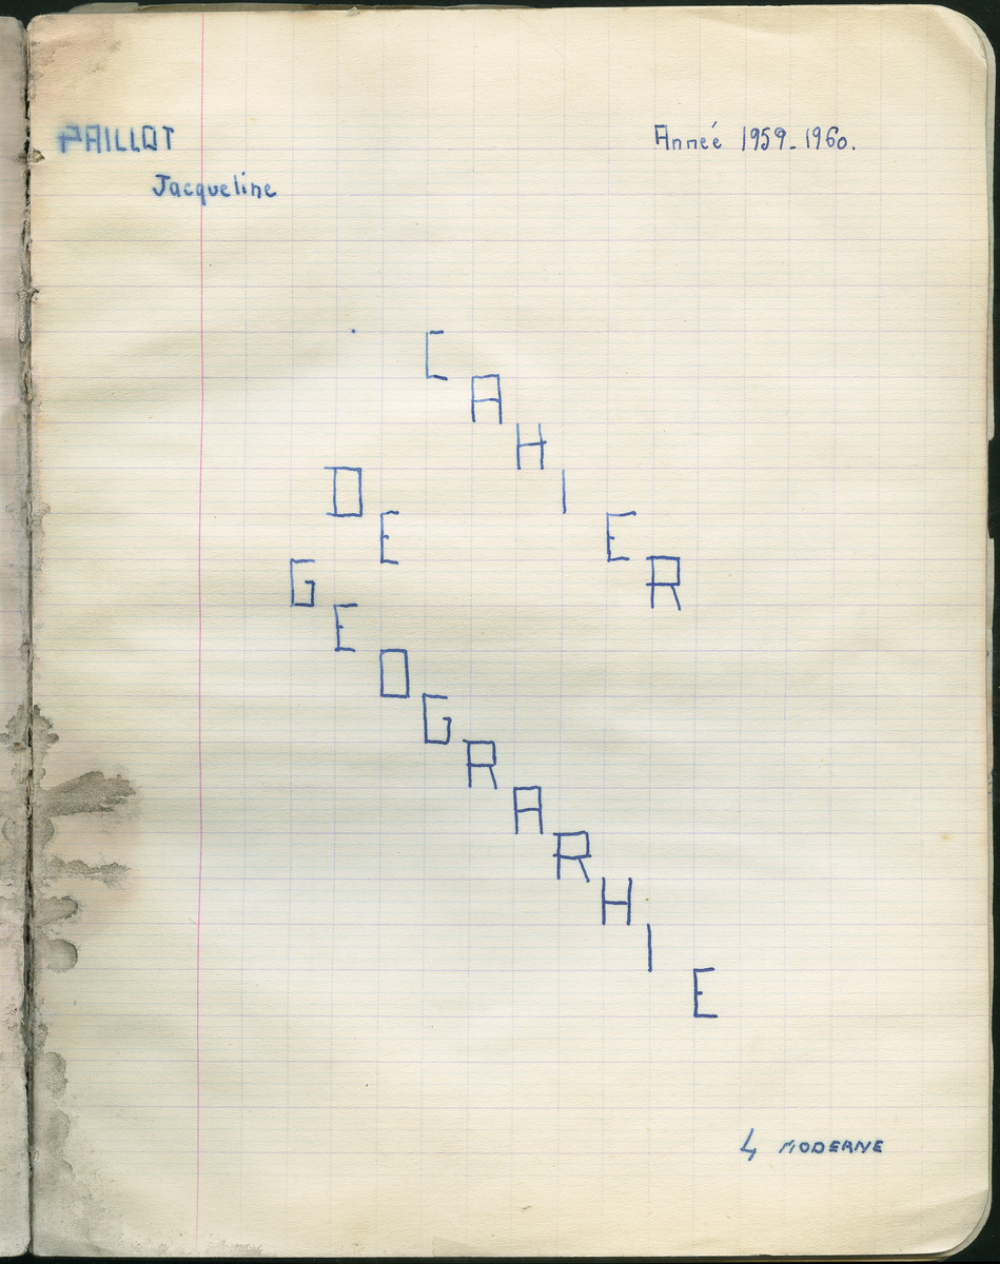 PAILLOT
Jacqueline
Année 1959-1960.
CAHIER
DE
GEOGRARHIE
4 MODERNE